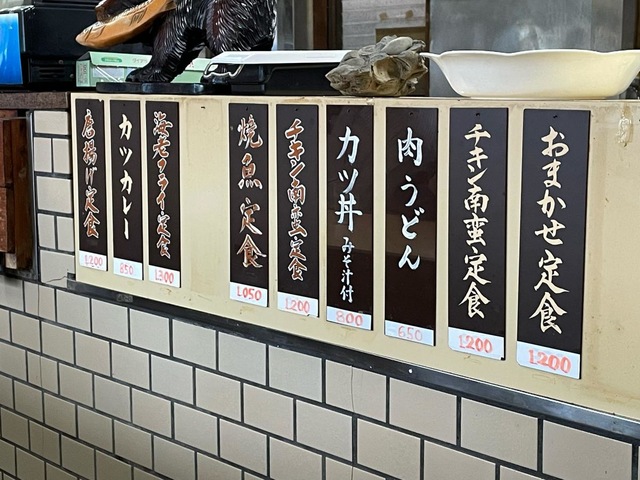 おまかせ定食
1200
チキン南蛮定食
1200
肉うどん
650
カツ丼 みそ汁付
800
チキン南蛮定食
1200
焼魚定食
1,050
海老フライ定食
1,300
カツカレー
850
唐揚げ定食
1,200